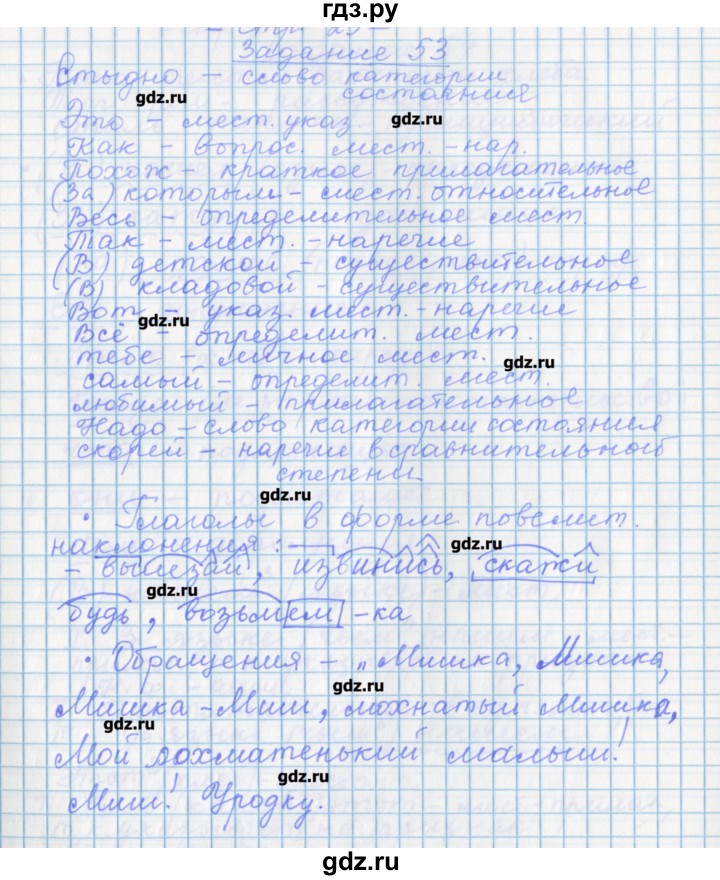 гдз.ру
– Стр. 29 –
Задание 53
Стыдно – слово категории
состояния
gdz.ru
Это – мест. указ.
gdz.ru
Как – вопрос. мест. – нар.
Похож – краткое прилагательное
(За) которым – мест. относительное
Весь – определительное мест.
Так – мест. – наречие
(В) детской – существительное
(В) кладовой – существительное
Вот – указ. мест. – наречие
gdz.ru
Всё – определит. мест.
тебе – личное мест.
gdz.ru
самый – определит. мест.
любимый – прилагательное
Надо – слово категории состояния
скорей – наречие в сравнительной
степени
gdz.ru
• Глаголы в форме повелит.
наклонения:
gdz.ru
– вылезай, извинись, скажи
gdz.ru
будь, возьмём-ка
• Обращения – „Мишка, Мишка,
gdz.ru
Мишка – Миш, лохнатый Мишка,
gdz.ru
Мой лохматенький малыш!
gdz.ru
Миш! Уродку.
gdz.ru